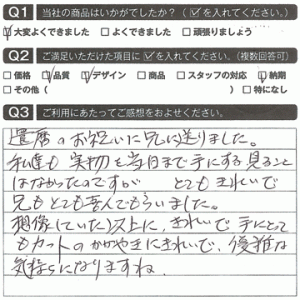 Q1 当社の商品はいかがでしたか？（☑を入れてください。）
☑大変よくできました □よくできました □頑張りましょう
Q2 ご満足いただけた項目に☑を入れてください。（複数回答可）
□価格 ☑品質 ☑デザイン □商品 □スタッフの対応 ☑納期
□その他（ ） □特になし
Q3 ご利用にあたってご感想をおよせください。
還暦のお祝いに兄に送りました。
私達も実物を当日まで手にする見ること
はなかったのですが とてもきれいで
兄もとても喜んでもらいました。
想像していた以上に、きれいで、手にとって
もカットのかがやきにきれいで、優雅な
気持ちになりますね